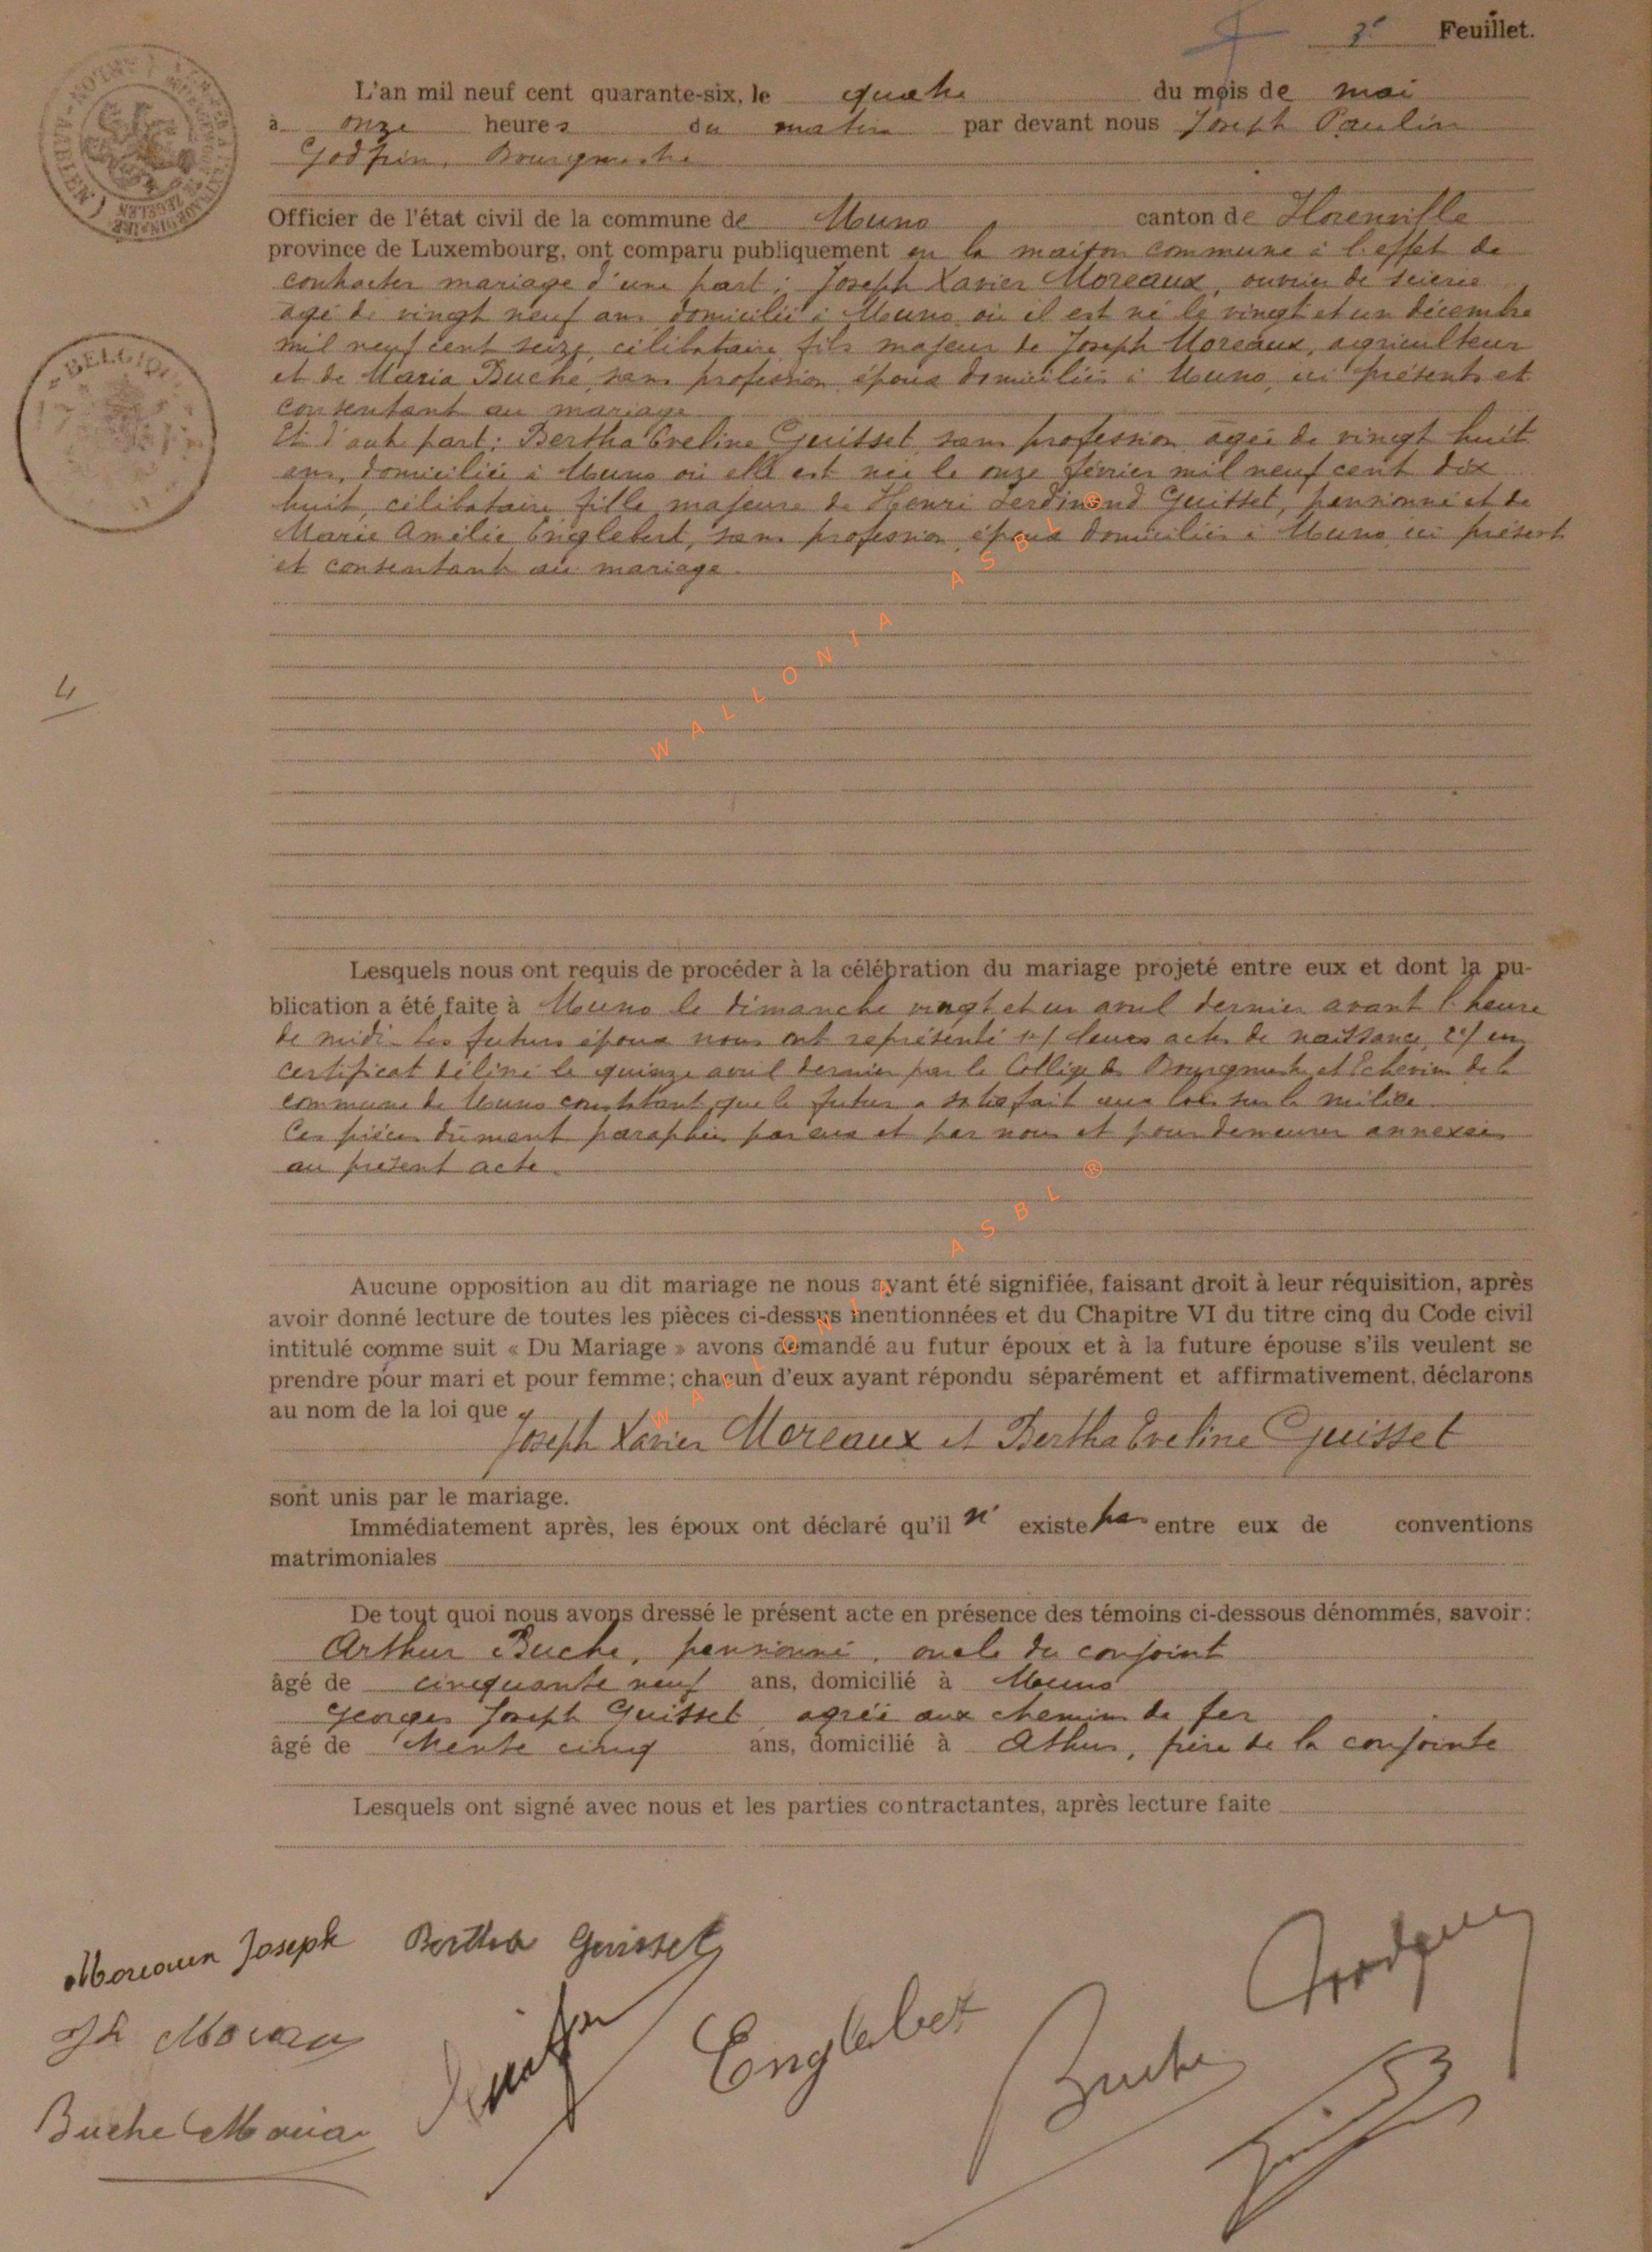 3e Feuillet.
L'an mil neuf cent quarante-six, le quatre du mois de mai
à onze heures du matin par devant nous Joseph Paulin
Godfrin, Bourgmestre
Officier de l'état civil de la commune de Muno canton de Florenville
province de Luxembourg, ont comparu publiquement en la maison commune à l'effet de
contracter mariage d'une part : Joseph Xavier Moreaux, ouvrier de scierie
agé de vingt neuf ans domicilié à Muno où il est né le vingt et un décembre
mil neuf cent seize, célibataire, fils majeur de Joseph Moreaux, agriculteur
et de Maria Buche, sans profession, époux domiciliés à Muno, ici présents et
consentant au mariage
Et d'autre part : Bertha Eveline Guisset, sans profession agée de vingt huit
ans, domiciliée à Muno où elle est née le onze février mil neuf cent dix
huit, célibataire fille majeure de Henri Ferdinand Guisset, pensionné et de
Marie Amélie Englebert, sans profession, époux domiciliés à Muno ici présent
et consentant au mariage.
4
Lesquels nous ont requis de procéder à la célébration du mariage projeté entre eux et dont la pu-
blication a été faite à Muno le dimanche vingt et un avril dernier avant l'heure
de midi. Les futurs époux nous ont représenté 1°/ leurs actes de naissance, 2°/ un
certificat délivré le quinze avril dernier par le Collège des Bourgmestre et Echevins de la
commune de Muno constatant que le futur a satisfait aux lois sur la milice
Ces pièces dument paraphées par eux et par nous et pour demeurer annexées
au présent acte.
Aucune opposition au dit mariage ne nous ayant été signifiée, faisant droit à leur réquisition, après
avoir donné lecture de toutes les pièces ci-dessus mentionnées et du Chapitre VI du titre cinq du Code civil
intitulé comme suit « Du Mariage » avons demandé au futur époux et à la future épouse s'ils veulent se
prendre pour mari et pour femme; chacun d'eux ayant répondu séparément et affirmativement, déclarons
au nom de la loi que
Joseph Xavier Moreaux et Bertha Eveline Guisset
sont unis par le mariage.
Immédiatement après, les époux ont déclaré qu'il n' existe pas entre eux de conventions
matrimoniales
De tout quoi nous avons dressé le présent acte en présence des témoins ci-dessous dénommés, savoir :
Arthur Buche, pensionné, oncle du conjoint
âgé de cinquante neuf ans, domicilié à Muno
Georges Joseph Guisset, agréé aux chemins de fer
âgé de trente cinq ans, domicilié à Athus, frère de la conjointe
Lesquels ont signé avec nous et les parties contractantes, après lecture faite
Moreaux Joseph Bertha Guisset
Englebert
Buche
Buche Maria
BELGIQUE
WALLONIA ASBL ®
WALLONIA ASBL ®